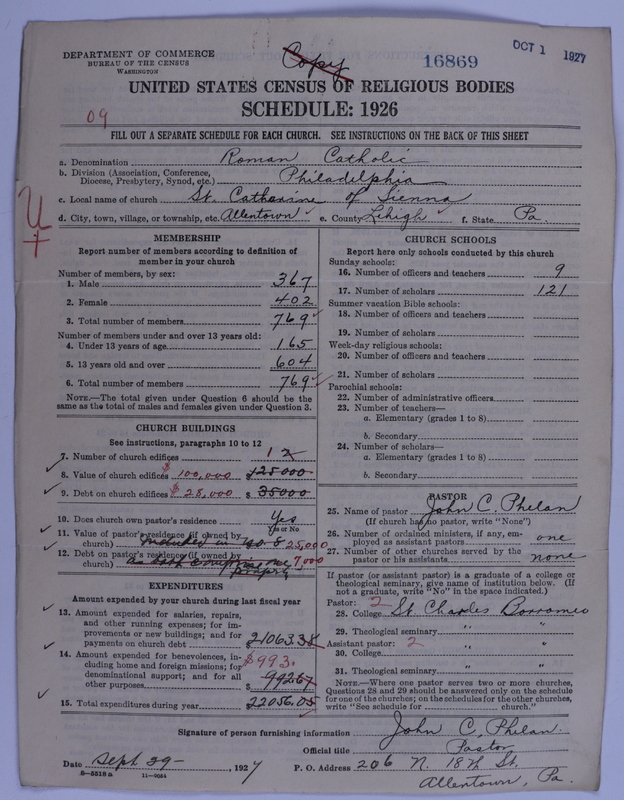 DEPARTMENT OF COMMERCE
BUREAU OF THE CENSUS
WASHINGTON
Copy
16869
OCT 1 1927
UNITED STATES CENSUS OF RELIGIOUS BODIES
SCHEDULE: 1926
09
FILL OUT A SEPARATE SCHEDULE FOR EACH CHURCH. SEE INSTRUCTIONS ON THE BACK OF THIS SHEET
a. Denomination Roman Catholic
b. Division (Association, Conference,
Diocese, Presbytery, Synod, etc.) Philadelphia
c. Local name of church St. Catharine of Sienna
d. City, town, village, or township, etc. Allentown e. County Lehigh f. State Pa.
MEMBERSHIP
Report number of members according to definition of
member in your church
Number of members, by sex:
1. Male 367
2. Female 402
3. Total number of members 769
Number of members under and over 13 years old:
4. Under 13 years of age 165
5. 13 years old and over 604
6. Total number of members 769
NOTE.—The total given under Question 6 should be
the same as the total of males and females given under Question 3.
CHURCH BUILDINGS
See instructions, paragraphs 10 to 12
7. Number of church edifices 1 2
8. Value of church edifices $100,000 $125000
9. Debt on church edifices $28,000 $35000
10. Does church own pastor's residence Yes
Yes or No
11. Value of pastor's residence (if owned by
church) included in No. 8 25,000
12. Debt on pastor's residence (if owned by
church) 7,000
property
EXPENDITURES
Amount expended by your church during last fiscal year
13. Amount expended for salaries, repairs,
and other running expenses; for im-
provements or new buildings; and for
payments on church debt 21063.38
14. Amount expended for benevolences, in- $993.
cluding home and foreign missions; for
denominational support; and for all
other purposes $ 99267
15. Total expenditures during year 22056.05
CHURCH SCHOOLS
Report here only schools conducted by this church
Sunday schools:
16. Number of officers and teachers 9
17. Number of scholars 121
Summer vacation Bible schools:
18. Number of officers and teachers
19. Number of scholars
Week-day religious schools:
20. Number of officers and teachers
21. Number of scholars
Parochial schools:
22. Number of administrative officers
23. Number of teachers—
a. Elementary (grades 1 to 8)
b. Secondary
24. Number of scholars—
a. Elementary (grades 1 to 8)
b. Secondary
PASTOR
25. Name of pastor John C. Phelan
(If church has no pastor, write "None")
26. Number of ordained ministers, if any, em-
ployed as assistant pastors one
27. Number of other churches served by the
pastor or his assistants none
If pastor (or assistant pastor) is a graduate of a college or
theological seminary, give name of institution below. (If
not a graduate, write "No" in the space indicated.)
Pastor: 2
28. College St Charles Borromeo
29. Theological seminary " "
Assistant pastor: 2
30. College " "
31. Theological seminary " "
NOTE.—Where one pastor serves two or more churches,
Questions 28 and 29 should be answered only on the schedule
for one of the churches; on the schedules for the other churches,
write "See schedule for church."
Signature of person furnishing information John C. Phelan
Official title Pastor
Date Sept 29-, 1927 P. O. Address 206 N. 18th St.
8—5518a 11—9564 Allentown, Pa.